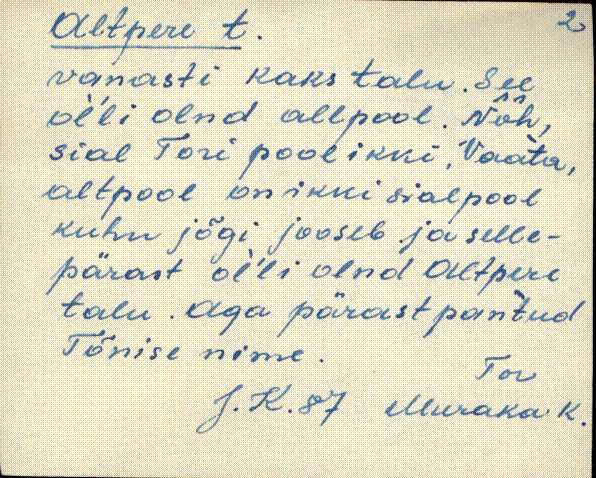 2
Altpere t.
vanasti kaks talu. See
ol'li olnd allpool. Nôh,
sial Tori pool ikki. Vaata,
altpool on ikki sialpool
kuhu jõgi jooseb ja selle-
pärast ol'li olnd Altpere
talu. Aga pärast pantud
Tõnise nime.
Tor
J.K.87 Muraka k.